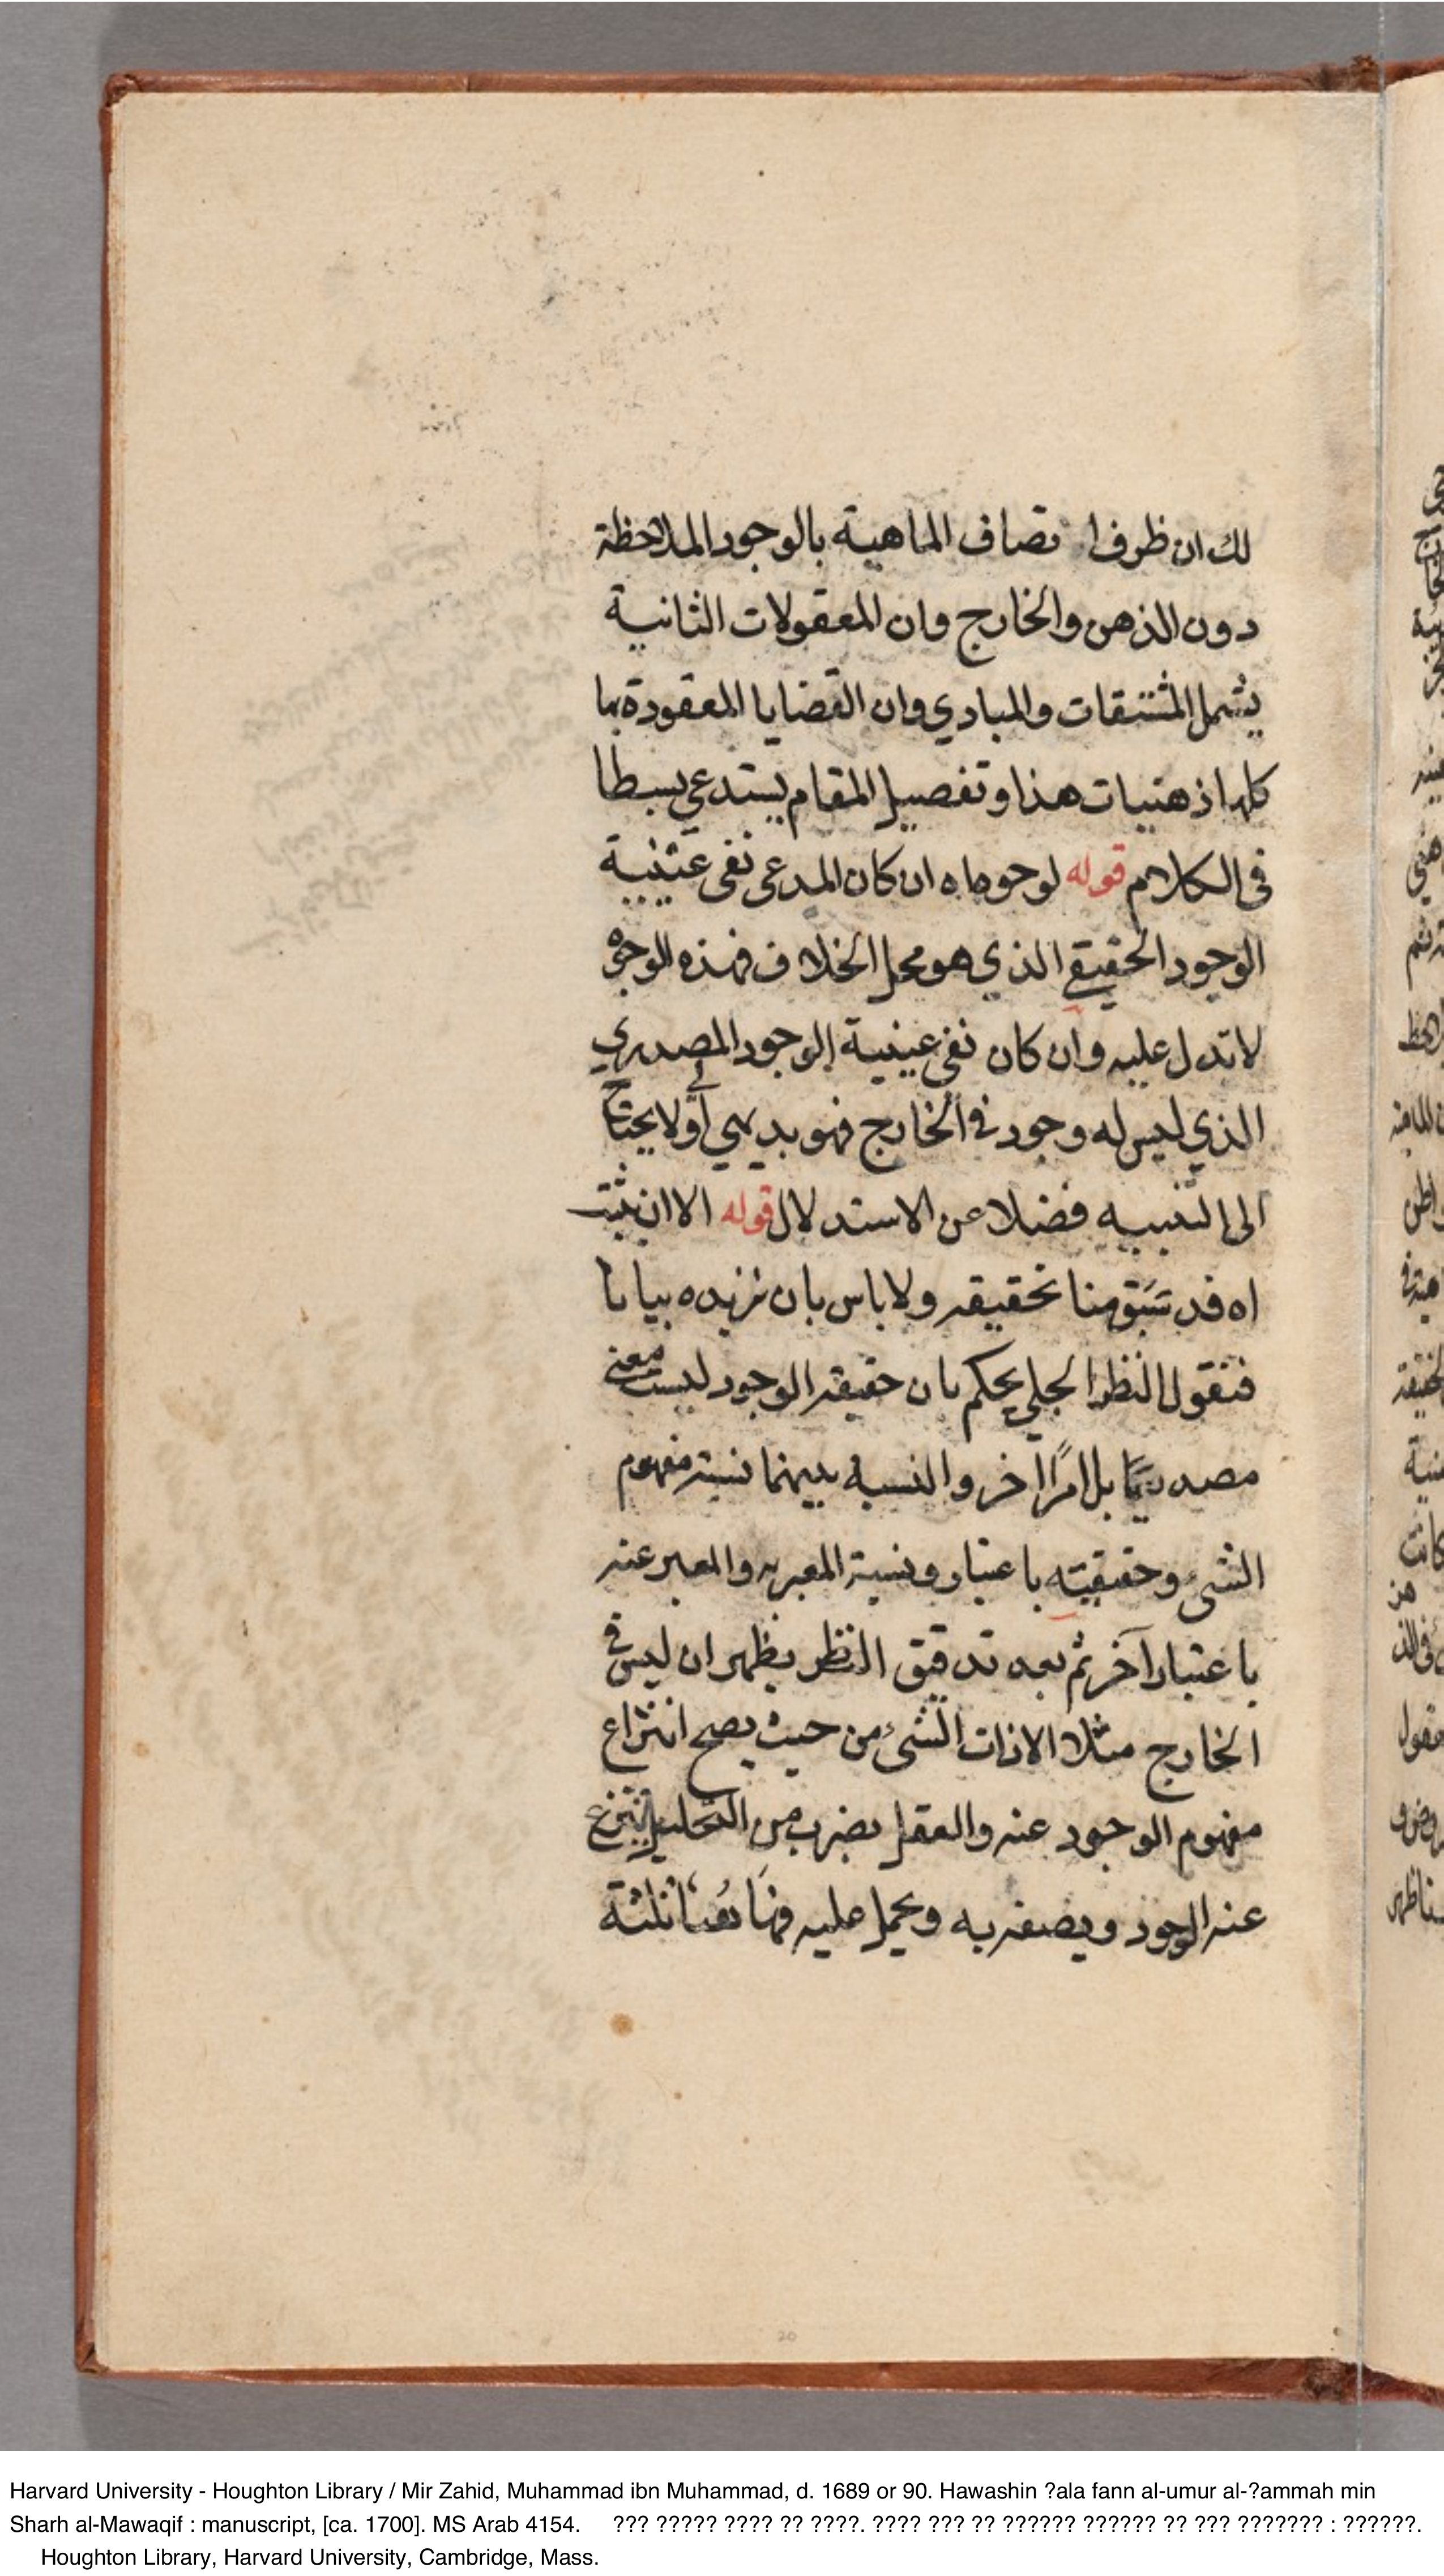 لك ان ظرف اتصاف الماهية بالوجود الملاحظة
دون الذهن والخارج وان المعقولات الثانية
يشمل المشتقات والمبادي وان القضايا المعقودة بها
كلها ذهنيات هذا وتفصيل المقام يستدعي بسطا
في الكلام قوله لوجوه اه ان كان المدعى نفي عينية
الوجود الحقيقي الذي هو محل الخلاف فهذه الوجوه
لا تدل عليه وان كان نفي عينية الوجود المصدري
الذي ليس له وجود في الخارج فهو بديهي اولي لا يحتاج
الى التنبيه فضلا عن الاستدلال قوله الا ان يثبت
اه قد سَبَق منا تحقيقه ولا باس بان نزيده بيانا
فنقول النظر الجلي يحكم بان حقيقة الوجود ليست معنى
مصدريًّا بل امرًا اخر والنسبة بينهما نسبة مفهوم
الشيء وحقيقته باعتبار ونسبة المعبر به والمعبر عنه
باعتبار آخر ثم بعد تدقيق النظر يظهر ان ليس في
الخارج مثلا الا ذات الشيء من حيث يصح انتزاع
مفهوم الوجود عنه والعقل بضرب من التحليل ينتزع
عنه الوجود ويصفه به ويحمل عليه فههنا ثلثة
20
Harvard University - Houghton Library / Mir Zahid, Muhammad ibn Muhammad, d. 1689 or 90. Hawashin ?ala fann al-umur al-?ammah min
Sharh al-Mawaqif : manuscript, [ca. 1700]. MS Arab 4154. ??? ????? ???? ?? ????. ???? ??? ?? ?????? ?????? ?? ??? ??????? : ??????.
Houghton Library, Harvard University, Cambridge, Mass.